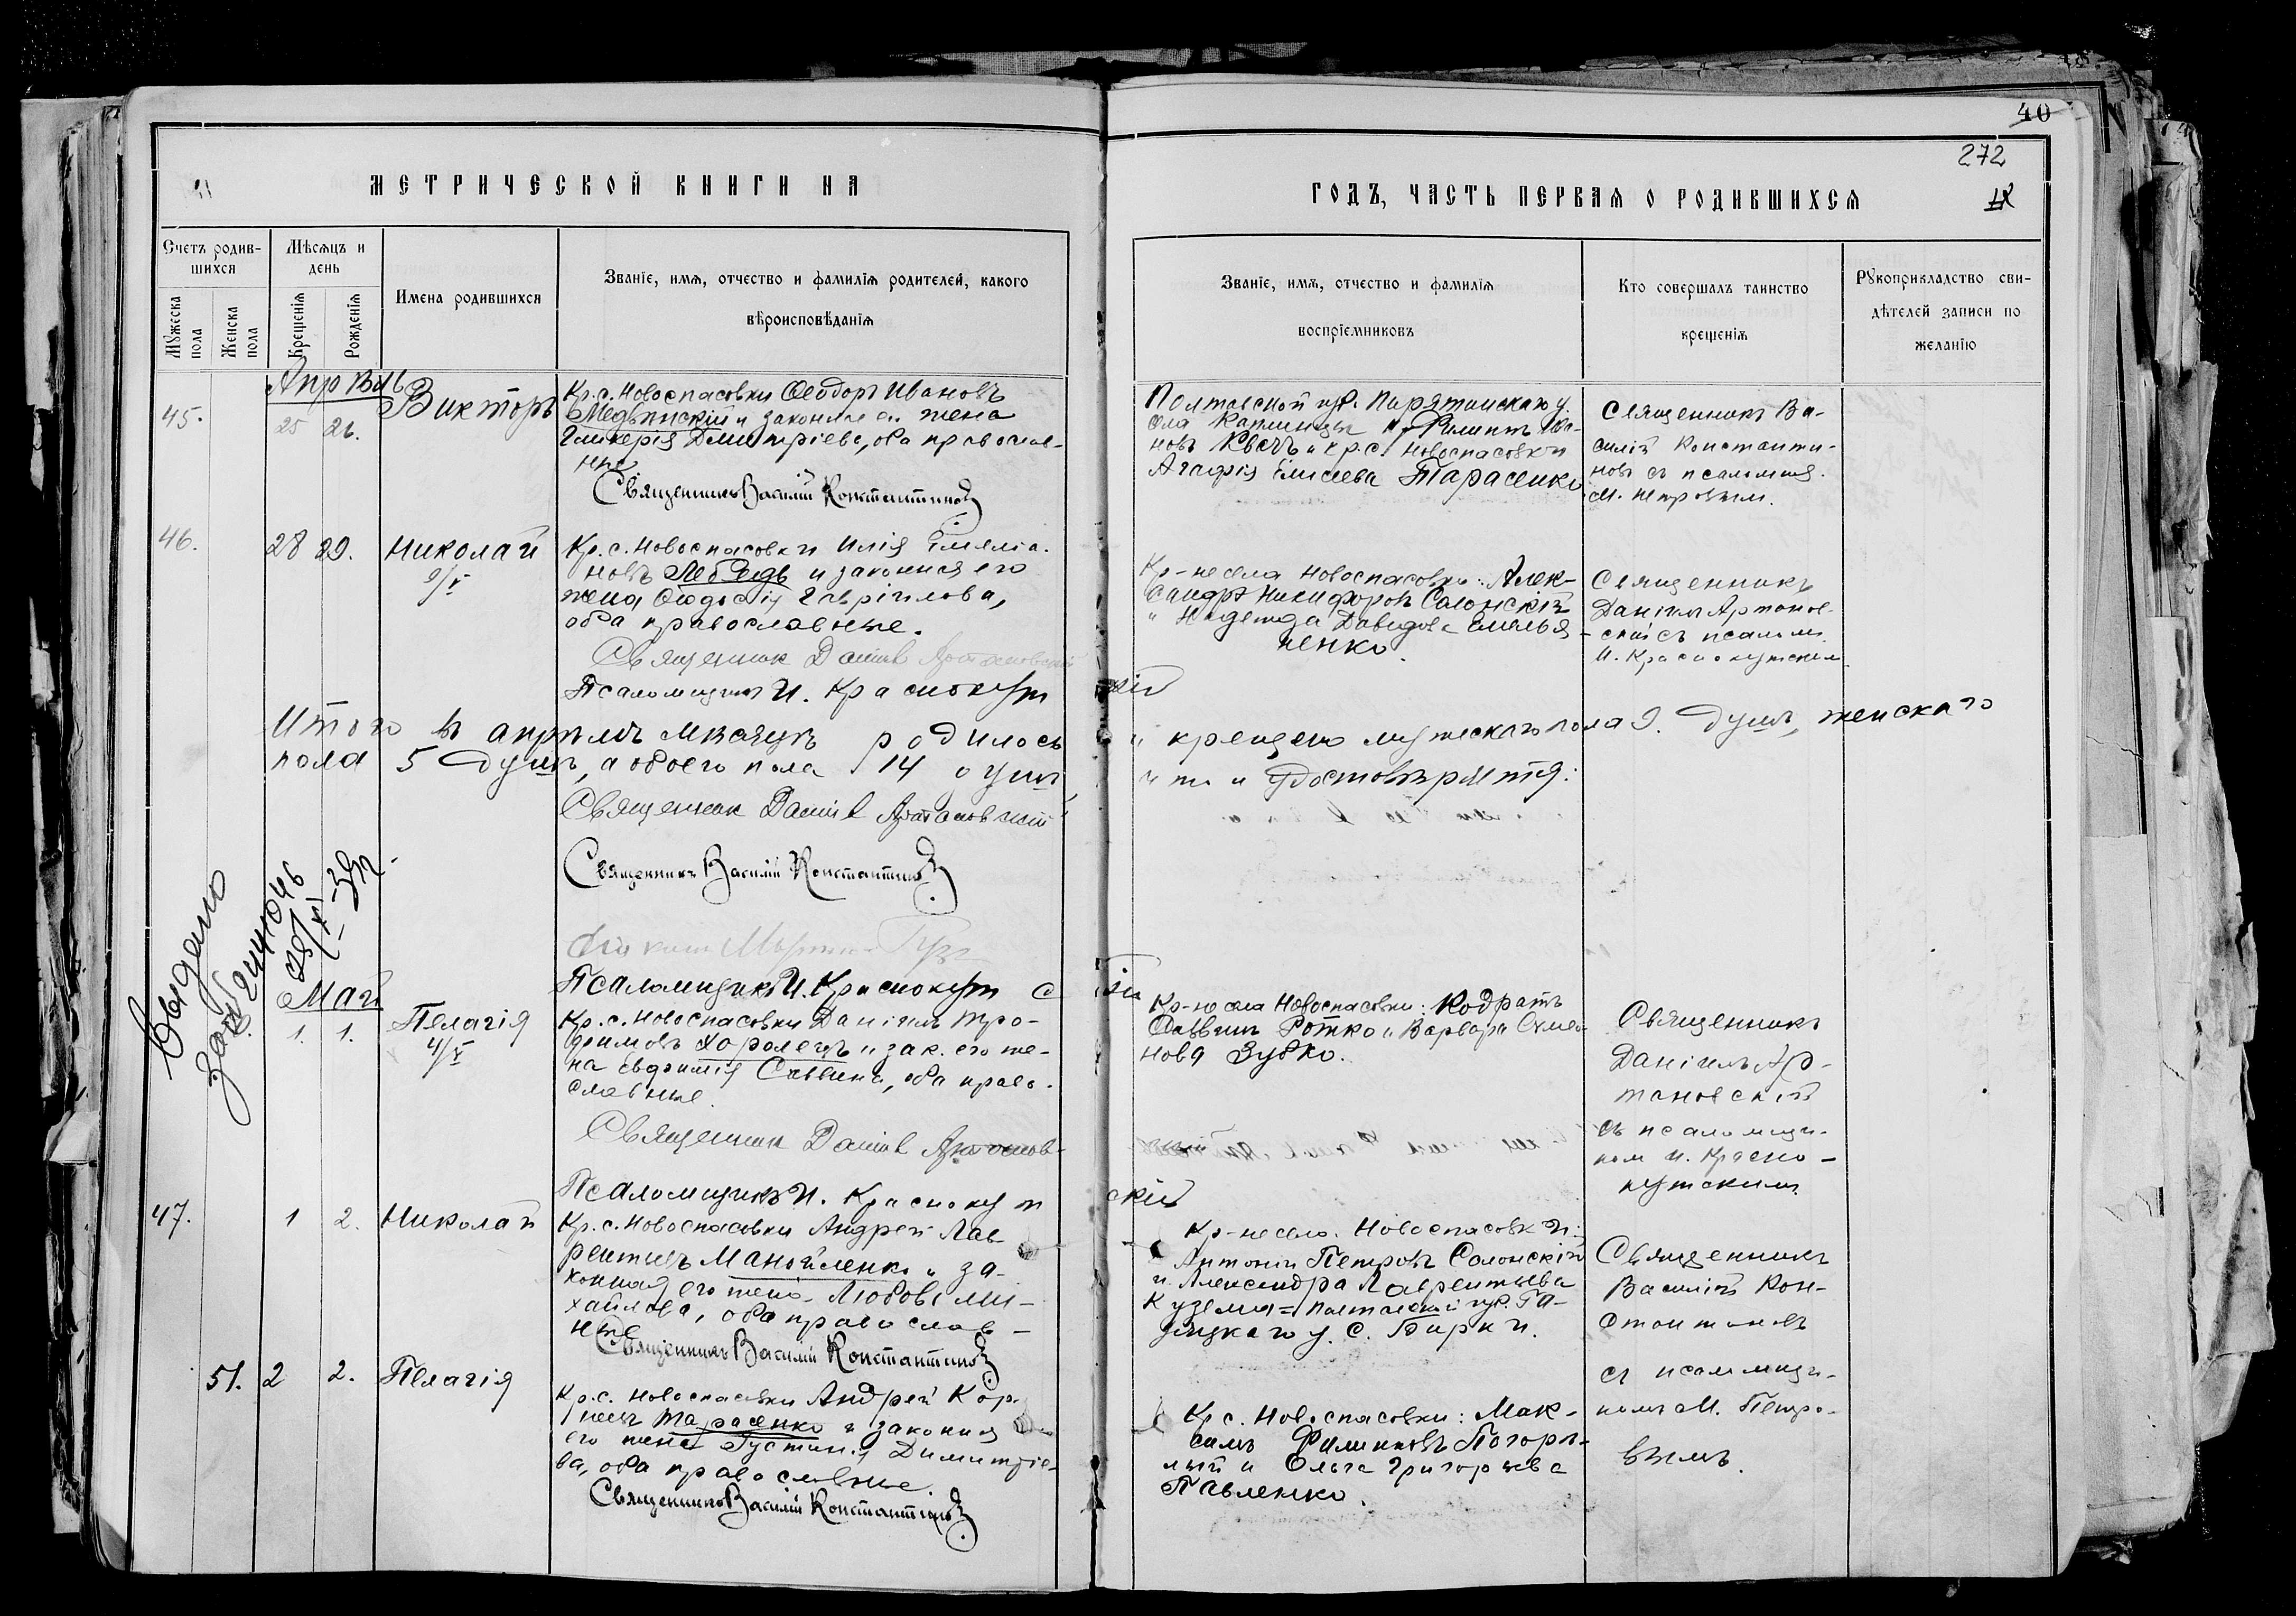 40
272
МЕТРИЧЕСКОЙ КНИГИ НА
ГОДЪ, ЧАСТЬ ПЕРВАЯ О РОДИВШИХСЯ
Счетъ родив-
шихся
Мѣсяцъ и
день
Мужеска
пола
Женска
пола
Крещенія
Рожденія
Имена родившихся
Званіе, имя, отчество и фамилія родителей, какого
вѣроисповѣданія
Званіе, имя, отчество и фамилія
воспріемниковъ
Кто совершалъ таинство
крещенія
Рукоприкладство сви-
дѣтелей записи по
желанію
Апрѣль
45.
25 26.
Викторъ
Кр. с. Новоспасовки Ѳеодоръ Ивановъ
и законная его жена
Гликерія Дмитріева, оба православ-
ные
Священникъ Василій Константиновъ
Полтавской губ. Пирятинскаго у.
села Каплинцы Филиппъ Ива-
новъ Квачъ и кр. с. Новоспасовки
Агафія Елисеева Тарасенко
Священникъ Ва-
силій Константи-
новъ съ псаломщ.
М. Петровымъ.
46.
28 29.
Николай
9/V
Кр. с. Новоспасовки Илія Емеліа-
новъ Лебедь и законная его
жена Ѳеодосія Гавріилова,
оба православные.
Священник Даніил Артановскій
Псаломщикъ И. Краснокутскій
Кр-не села Новоспасовки: Алек-
сандръ Никифоровъ Салонскій
и Надежда Давидова Емелья-
ненко.
Священникъ
Даніилъ Артанов-
скій съ псаломщ.
И. Краснокутским
Итого въ апрѣлѣ мѣсяцѣ родилось и крещено мужескаго пола 9. душъ, женскаго
пола 5 душъ, а обоего пола 14 душъ, что и удостовѣряется:
Священник Даніил Артановскій
Священникъ Василій Константиновъ
Псаломщикъ И. Краснокутскій
Выдано
Май
1. 1.
Пелагія
4/V
Кр. с. Новоспасовки Даніилъ Тро-
фимовъ Хоролецъ и зак. его же-
на Евфимія Саввина, оба право-
славные.
Священник Даніил Артановскій
Псаломщикъ И. Краснокутскій
Кр-не села Новоспасовки: Кодратъ
Саввинъ Ротко и Варвара Симео-
нова Зубко.
Священникъ
Даніилъ Ар-
тановскій
съ псаломщи-
ком И. Красно-
кутскимъ
47.
1 2.
Николай
Кр. с. Новоспасовки Андрей Лав-
рентьевъ Манойленко и за-
конная его жена Любовь Ми-
хайлова, оба православ-
ные
Священникъ Василій Константиновъ
Кр-не села Новоспасовки:
Антоній Петровъ Салонскій
и Александра Лаврентьева
Полтавской губ. Га-
дяцкаго у. с. Бирки.
Священникъ
Василій Кон-
стантиновъ
съ псаломщи-
комъ М. Петро-
вымъ.
51. 2 2.
Пелагія
Кр. с. Новоспасовки Андрей Кор-
неевъ Тарасенко и законная
его жена Іустинія Димитріе-
ва, оба православные.
Священникъ Василій Константиновъ
Кр. с. Новоспасовки: Мак-
симъ Филипповъ Погорѣ-
лый и Ольга Григорьева
Павленко.